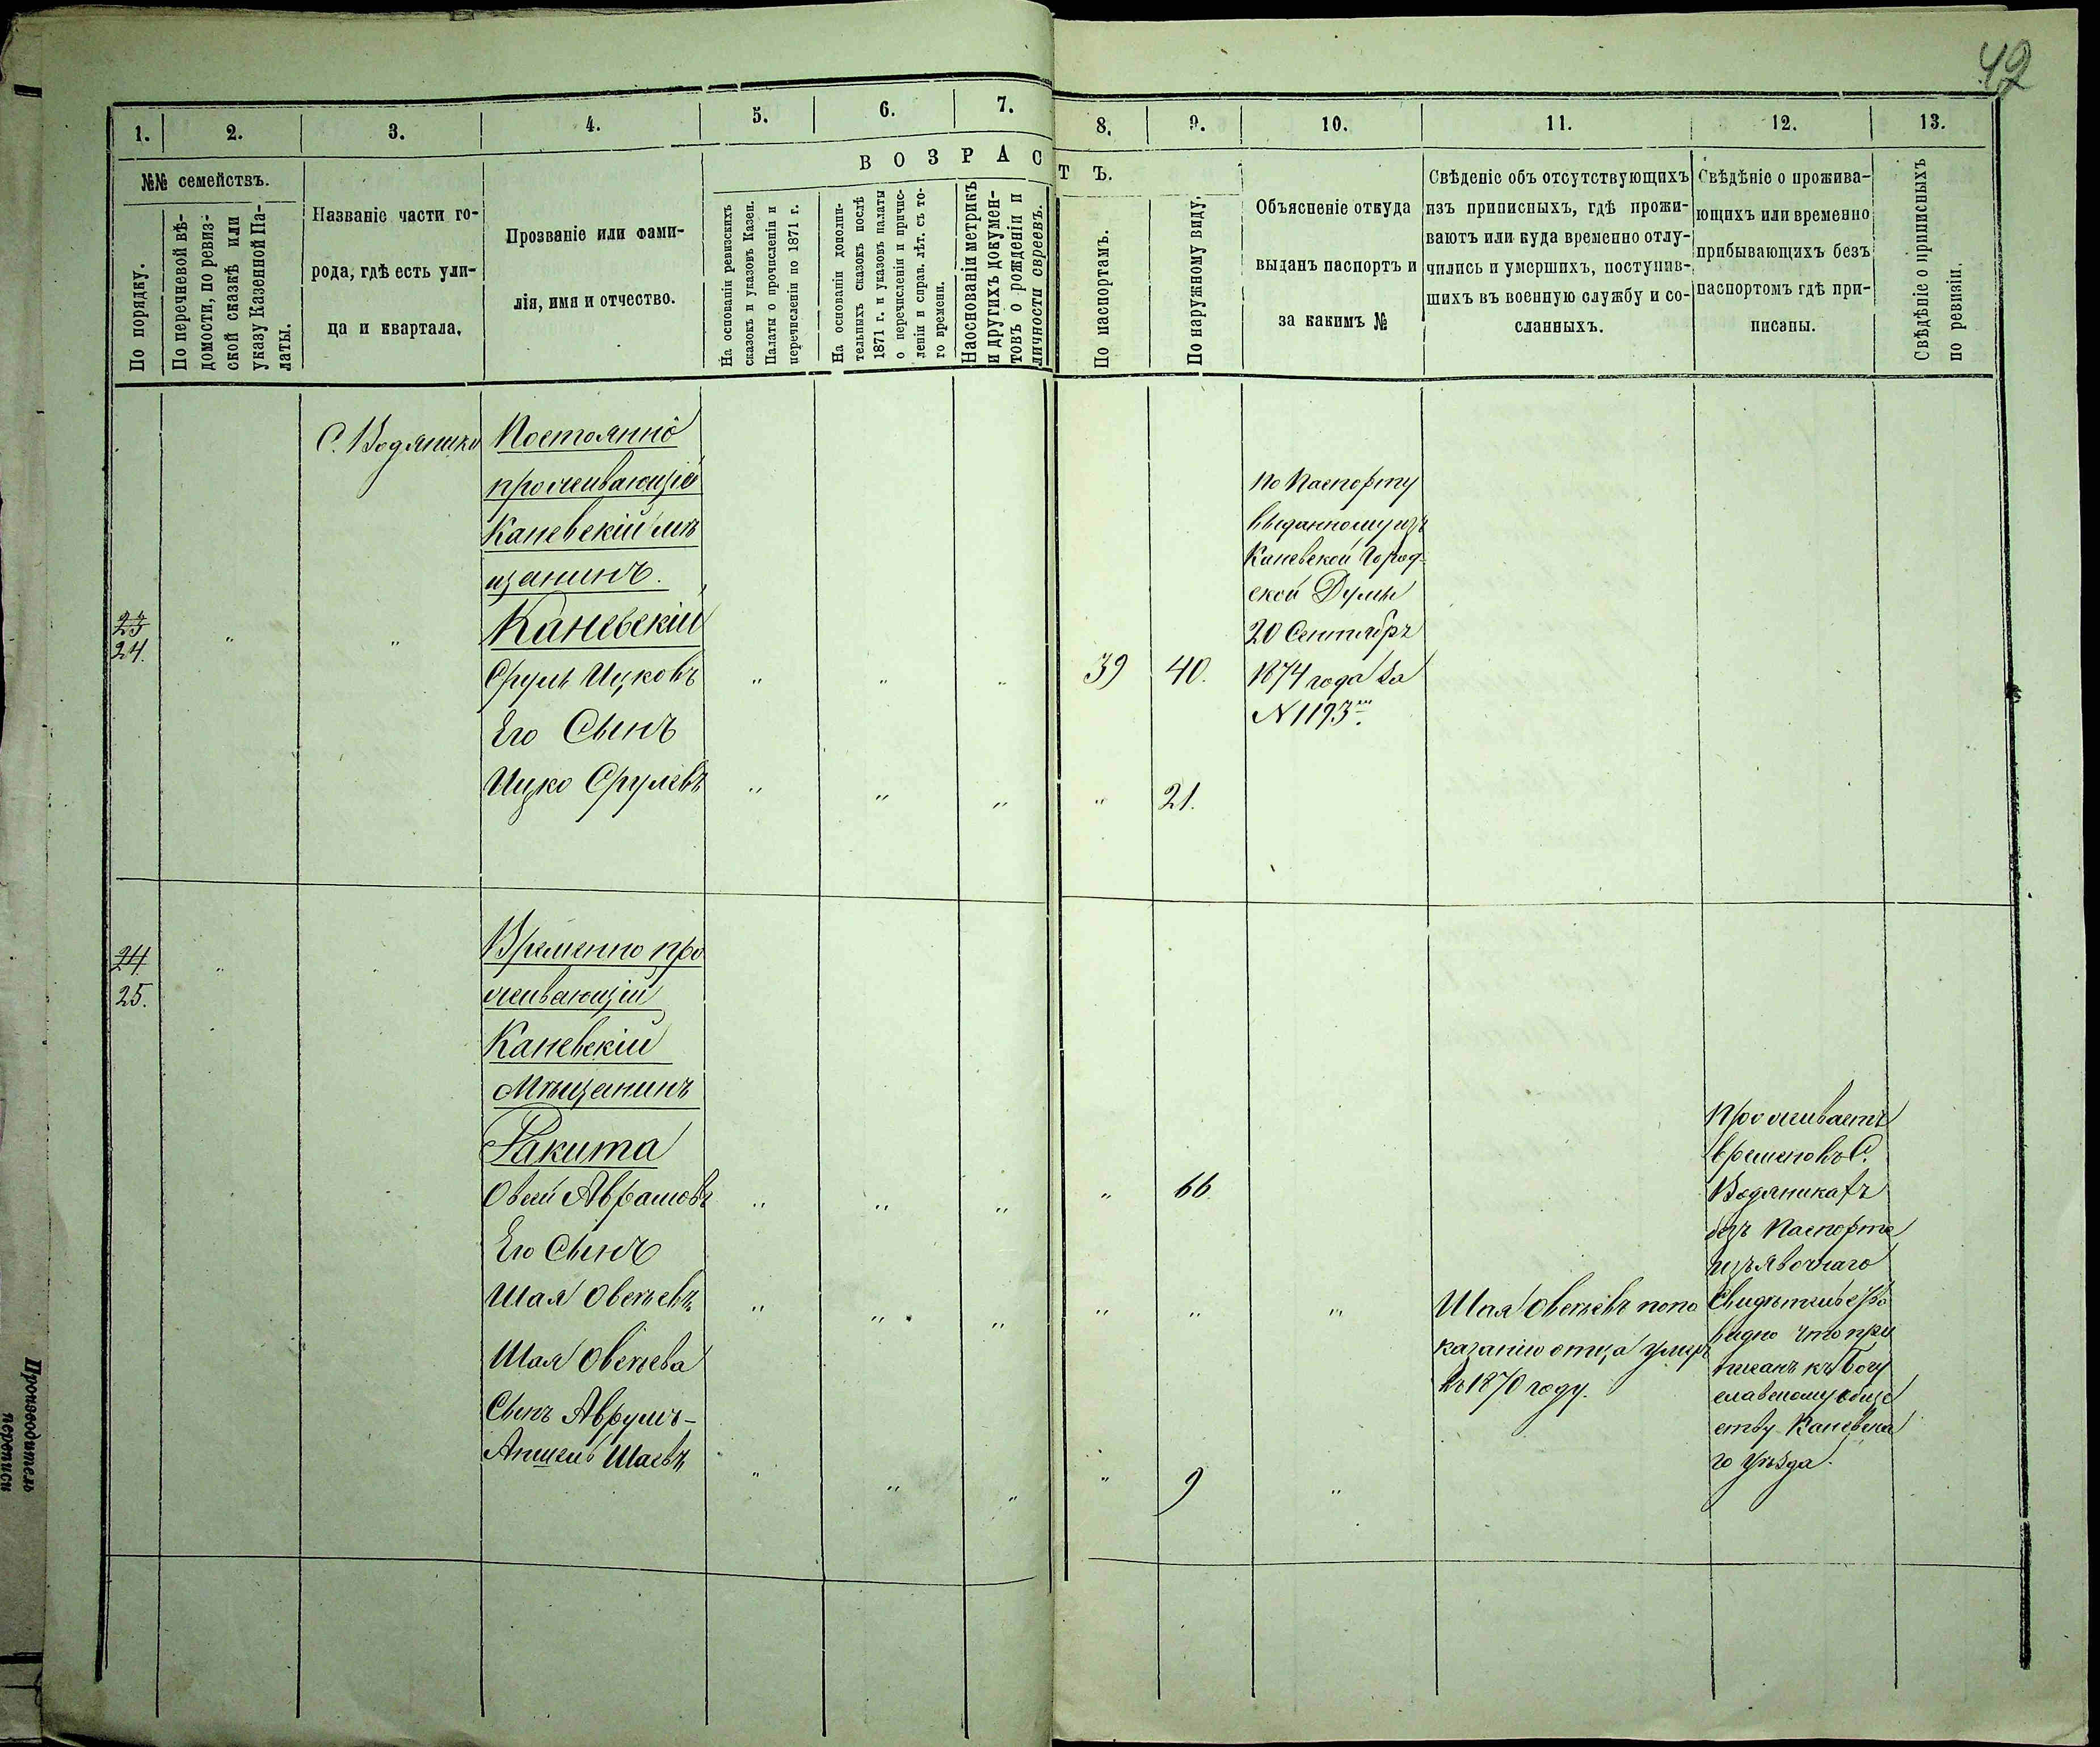 42
1. 2. 3. 4. 5. 6. 7. 8. 9. 10. 11. 12. 13.
№№ семействъ.
По порядку.
По перечневой вѣ-
домости, по ревиз-
ской сказкѣ или
указу Казенной Па-
латы.
Названіе части го-
рода, гдѣ есть ули-
ца и квартала.
Прозваніе или фами-
лія, имя и отчество.
ВОЗРАСТЪ.
На основаніи ревизскихъ
сказокъ и указовъ Казен.
Палаты о прочисленіи и
перечисленіи по 1871 г.
На основаніи дополни-
тельныхъ сказокъ послѣ
1871 г. и указовъ палаты
о перечисленіи и причис-
леніи и справ. лѣт. съ то-
го времени.
На основаніи метрикъ
и другихъ докумен-
товъ о рожденіи и
личности евреевъ.
По паспортамъ.
По наружному виду.
Объясненіе откуда
выданъ паспортъ и
за какимъ №
Свѣденіе объ отсутствующихъ
изъ приписныхъ, гдѣ прожи-
ваютъ или куда временно отлу-
чились и умершихъ, поступив-
шихъ въ военную службу и со-
сланныхъ.
Свѣдѣніе о прожива-
ющихъ или временно
прибывающихъ безъ
паспортомъ гдѣ при-
писаны.
Свѣдѣніе о приписныхъ
по ревизіи.
С. Водяники
Постоянно
проживающій
Каневскій мѣ
щанинъ.
23
24. " "
Каневскій
Сруль Ицковъ " " " 39 40.
Его Сынъ
Ицко Срулевъ " " " " 21.
по Паспорту
выданному изъ
Каневской Город-
ской Думы
20 Сентября
1874 года за
N 1193
24
25. " "
Временно про
живающій
Каневскій
Мѣщанинъ
Ракита
Овсей Аврамовъ " " " " 66
Его Сынъ
Шая Овсѣевъ " " " " " "
Шая Овсѣева
Сынъ Аврумъ-
Аншель Шаевъ " " " " 9 "
Шая Овсѣевъ попо
казанію отца умеръ
въ 1870 году.
Проживаетъ
временовъ С.
Водяникахъ
безъ Паспорта
изъ явочнаго
Свидѣтельства
видно что при
писанъ къ Богу
славскому обще
ству Каневска
го уѣзда.
Производитель
переписи